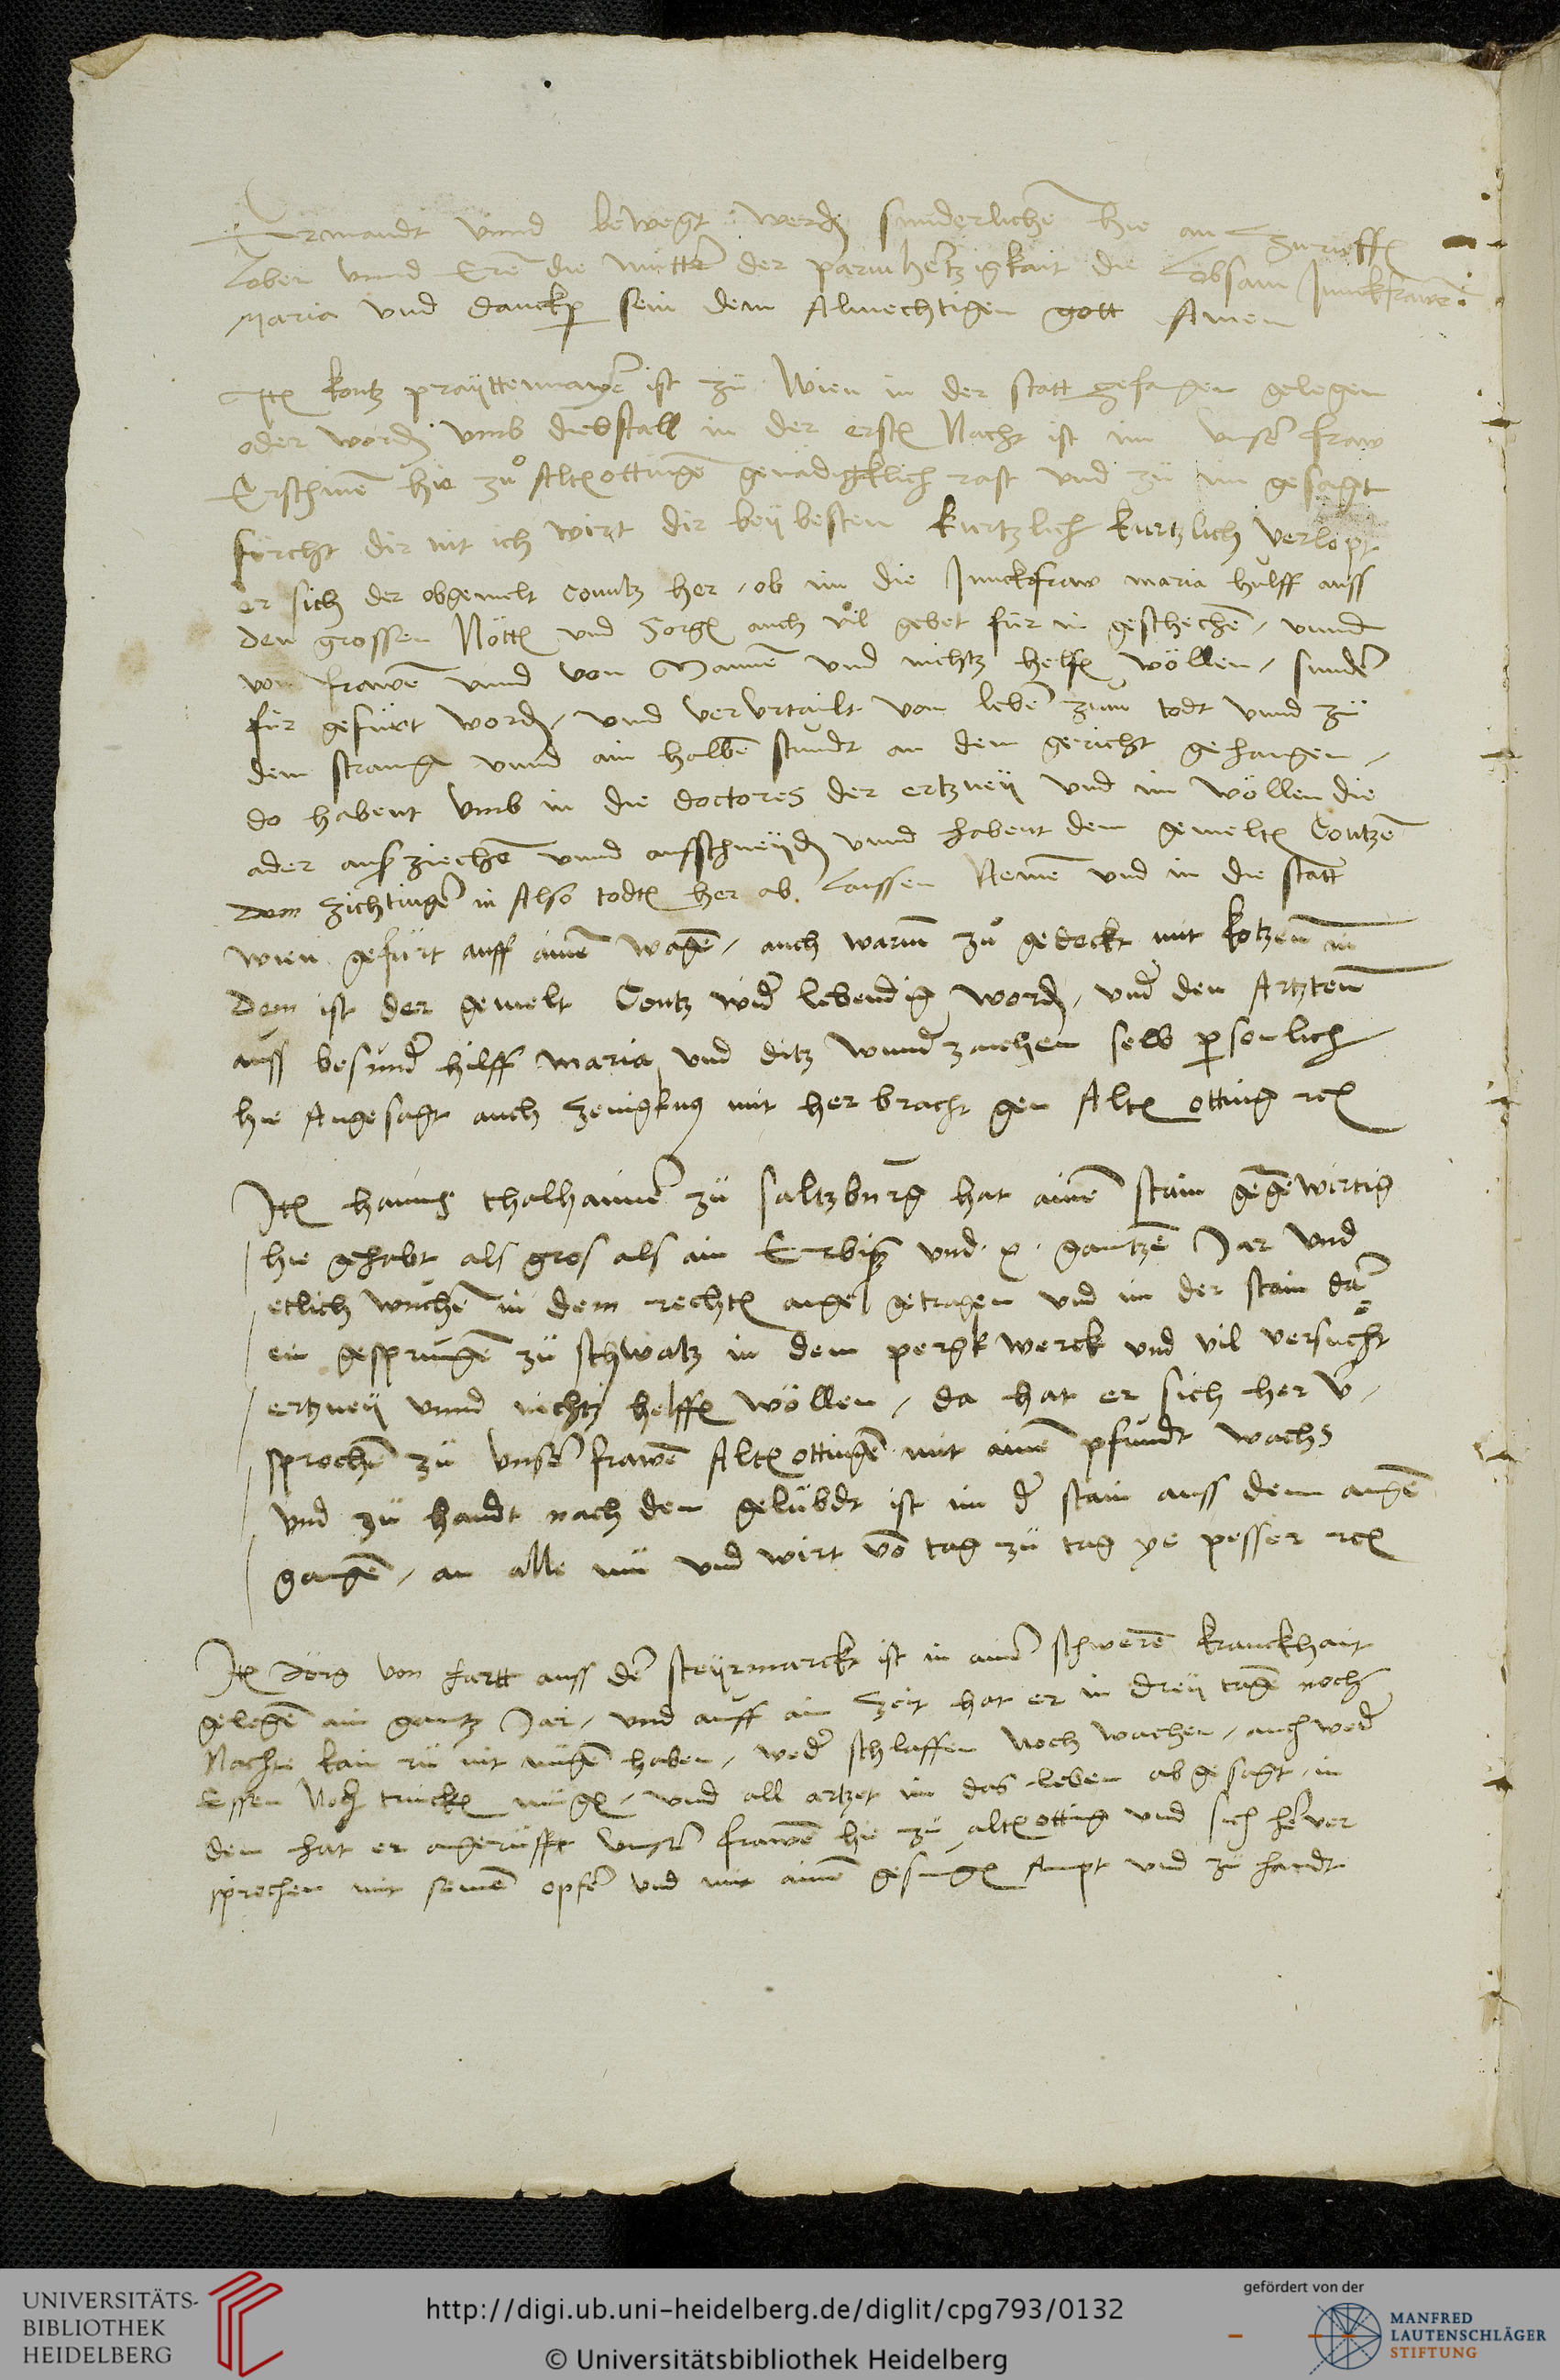 Ermandt vnnd bewegt werdn sunderlichen hie an zu ruffn
Loben vnnd Eren die mutter der parmhertzigkait die Lobsam Junckfrawen
Maria vnd danckper sein dem Almechtigen gott Amen
Itn kontz prayttenmayer ist zu Wien in der statt gefangen gelegen
oder wordn vmb diebstall in der erstn Nacht ist im vnser fraw
Erschinen hie zu Altnottingen genadigklich rast vnd zu im gesagt
furcht dir nit ich wirt dir bey besten kurtzlich kurtzlich verlopt
er sich der obgemelt contz her / ob im die Junckfraw maria hulff auss
den grossen Nöttn vnd Sorgn auch vil gebet für in geschechen / vnnd
von frawen vnnd von Mannen vnd nichtz helfn wöllen / sunder
für gefürt wordn / vnd vervrtailt von leben zum todt vnnd zu
dem strang vnnd ain halben stundt an dem gericht gehangen /
do habent vmb in die doctores der ertzney vnd im wöllen die
ader auß ziechen vnnd aufschneydn vnnd habent den gemeltn Contzen
den zichtinger in Also todtn her ab lassen Nemen vnd in die statt
wien gefürt auff ainen wagen / auch warm zu gedeckt mit kotzen in
dem ist der gemelt Contz wider lebendig wordn / vnder den Artzten
auss besunder hilff maria vnd ditz wunderzaichen selb personlich
hie Angesagt auch Zeugknus mit her bracht gen Altn otting rcn
Itn hanns thalhaimer zu saltzburg hat ainen stain gegenwirtig
hie gehabt als gros als ain Erbiß vnd .x. gantzen Jar vnd
etlich wuchen in dem rechtn auge getragen vnd im der stain dar
ein gesprungen zu schwatz in dem pergkwerck vnd vil versucht
ertzney vnnd nichtz helffn wöllen / da hat er sich her v
sprochen zu vnser frawen Altnottingen mit ainen pfundt wachs
vnd zu handt nach dem gelübdt ist im der stain auss dem augen
gangen / an alle mü vnd wirt von tag zu tag ye pesser rcn
Itn Jörg von hartt auss der steyrmarckt ist in ainer schweren kranckhait
gelegen ain gantz Jar / vnd auff ain Zeit hat er in drey tagen noch
Nachte kain rü nit mügen haben / weder schlaffen noch wachen / auch weder
Essen Noch trinckn mügn / vnd all artzet im das leben abgesagt / in
dem hat er angerufft vnnser frawen hie zu altnotting vnd sich her ver
sprechen mit seinem opfer vnd mit ainen gesungn Ampt vnd zu handt
UNIVERSITÄTS-
BIBLIOTHEK
HEIDELBERG
http://digi.ub.uni-heidelberg.de/diglit/cpg793/0132
© Universitätsbibliothek Heidelberg
gefördert von der
MANFRED
LAUTENSCHLÄGER
STIFTUNG